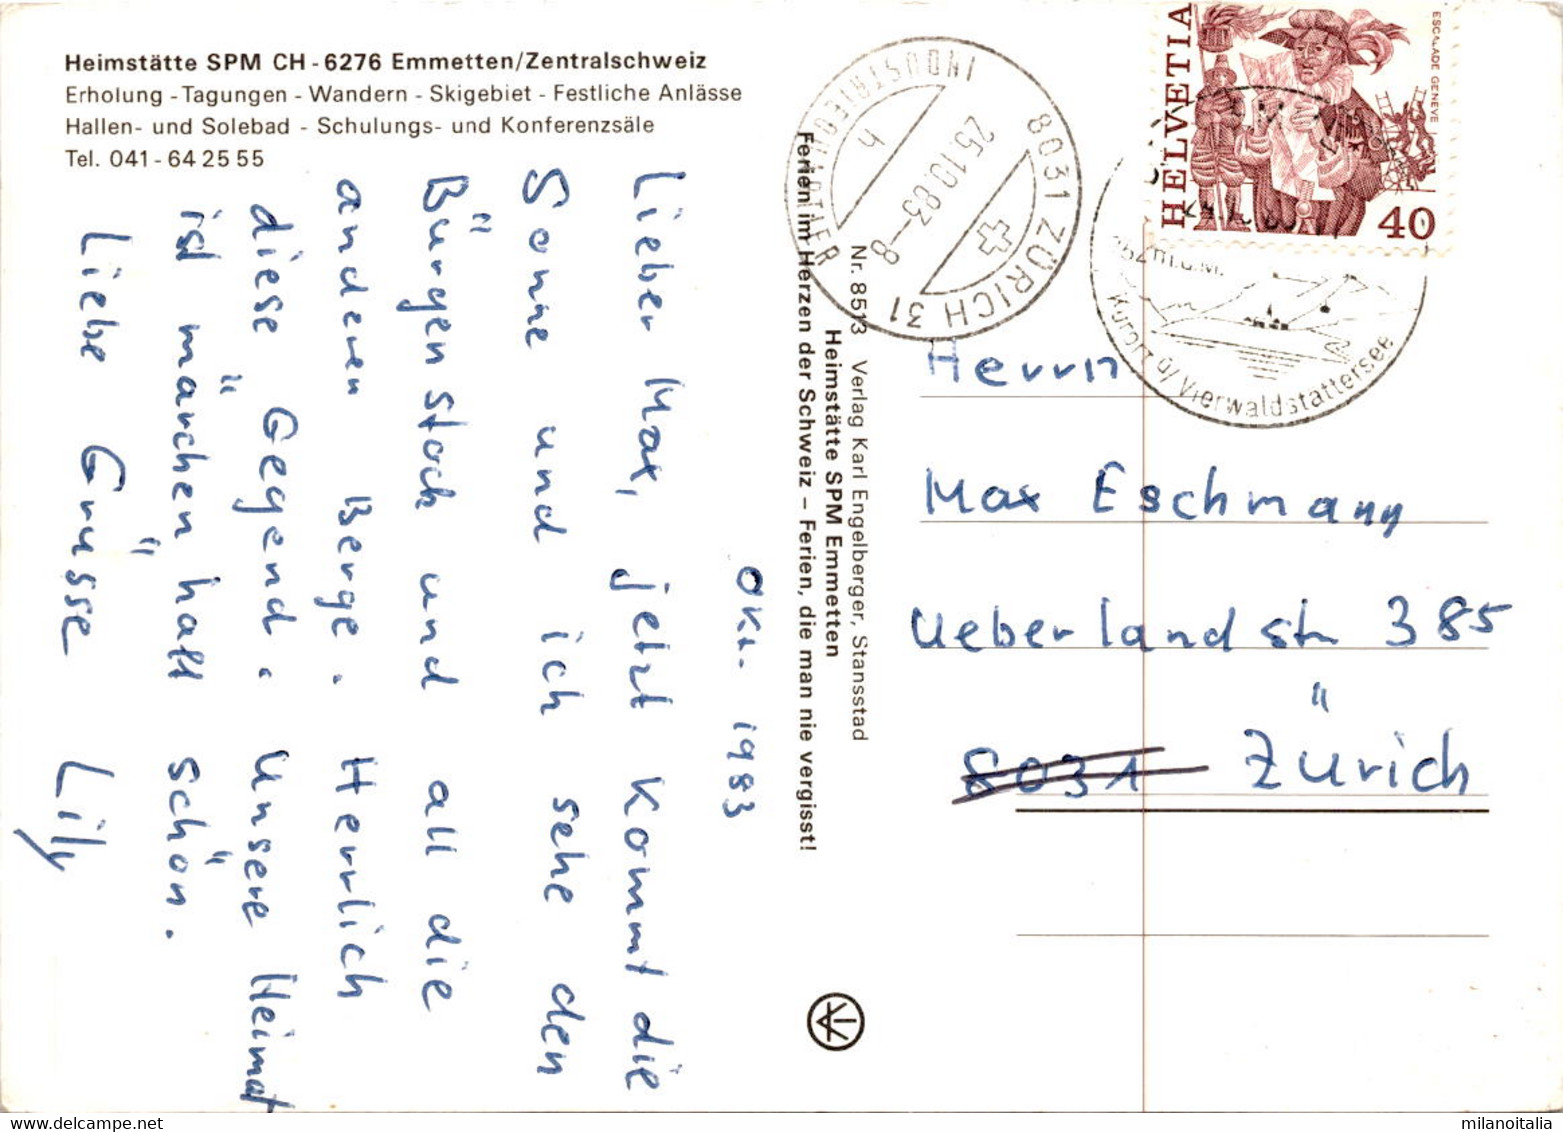 Heimstätte SPM CH - 6276 Emmetten/Zentralschweiz
Erholung - Tagungen - Wandern - Skigebiet - Festliche Anlässe
Hallen- und Solebad - Schulungs- und Konferenzsäle
Tel. 041 - 64 25 55
Okt. 1983
Lieber Max, jetzt kommt die
Sonne und ich sehe den
Bürgenstock und all die
anderen Berge. Herrlich
diese Gegend. Unsere Heimat
ist märchenhaft schön.
Liebe Grüsse Lily
Nr. 8513 Verlag Karl Engelberger, Stansstad
Heimstätte SPM Emmetten
Ferien im Herzen der Schweiz – Ferien, die man nie vergisst!
8031 ZÜRICH 31
INDUSTRIEQUARTIER
25.10.83-8
h
HELVETIA
ESCALADE GENEVE
40
m ü.M.
Kurort ü/Vierwaldstättersee
Herrn
Max Eschmann
Ueberlandstr 385
8031 Zürich
milanoitalia